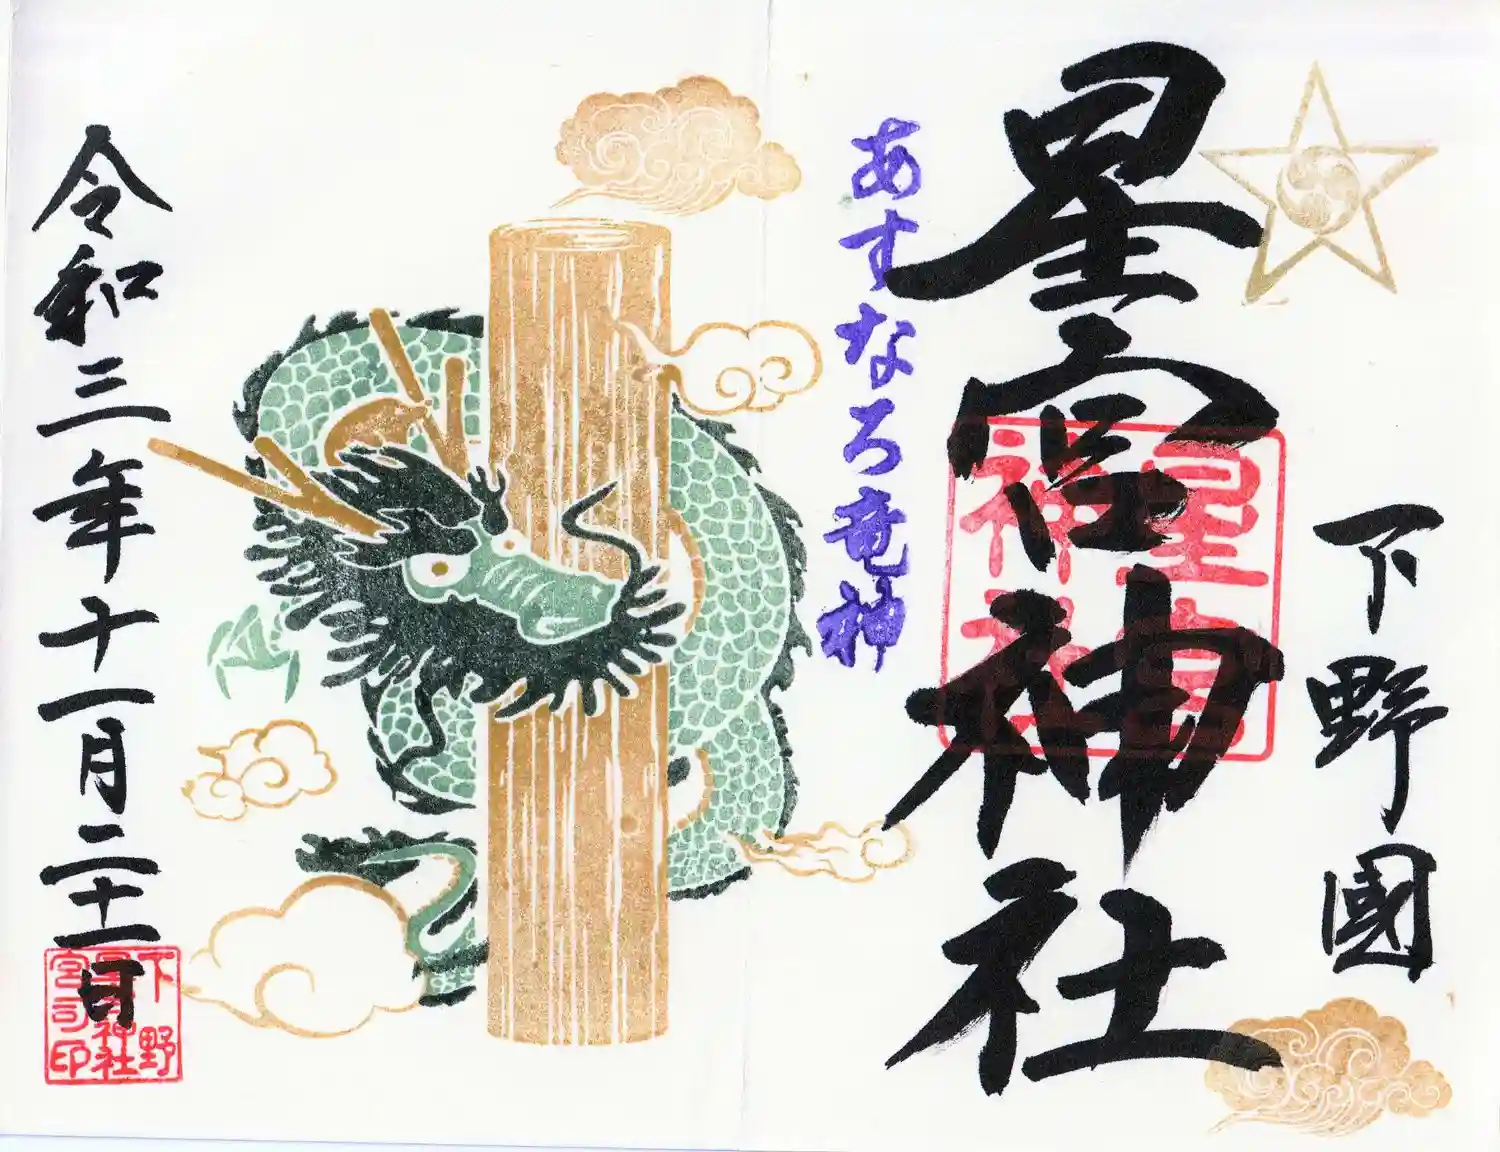 下野國
星宮神社
星宮
神社
あすなろ竜神
令和三年十一月二十一日
下野
星宮神社
宮司印